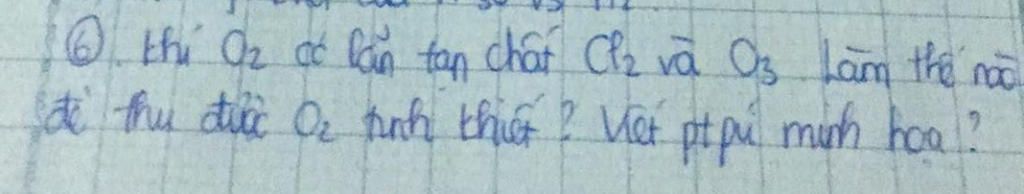 ⑥. khí O₂ có lẫn tạp chất Cl₂ và O₃ Làm thế nào
để thu được O₂ tinh khiết? Viết ptpứ minh hoạ?